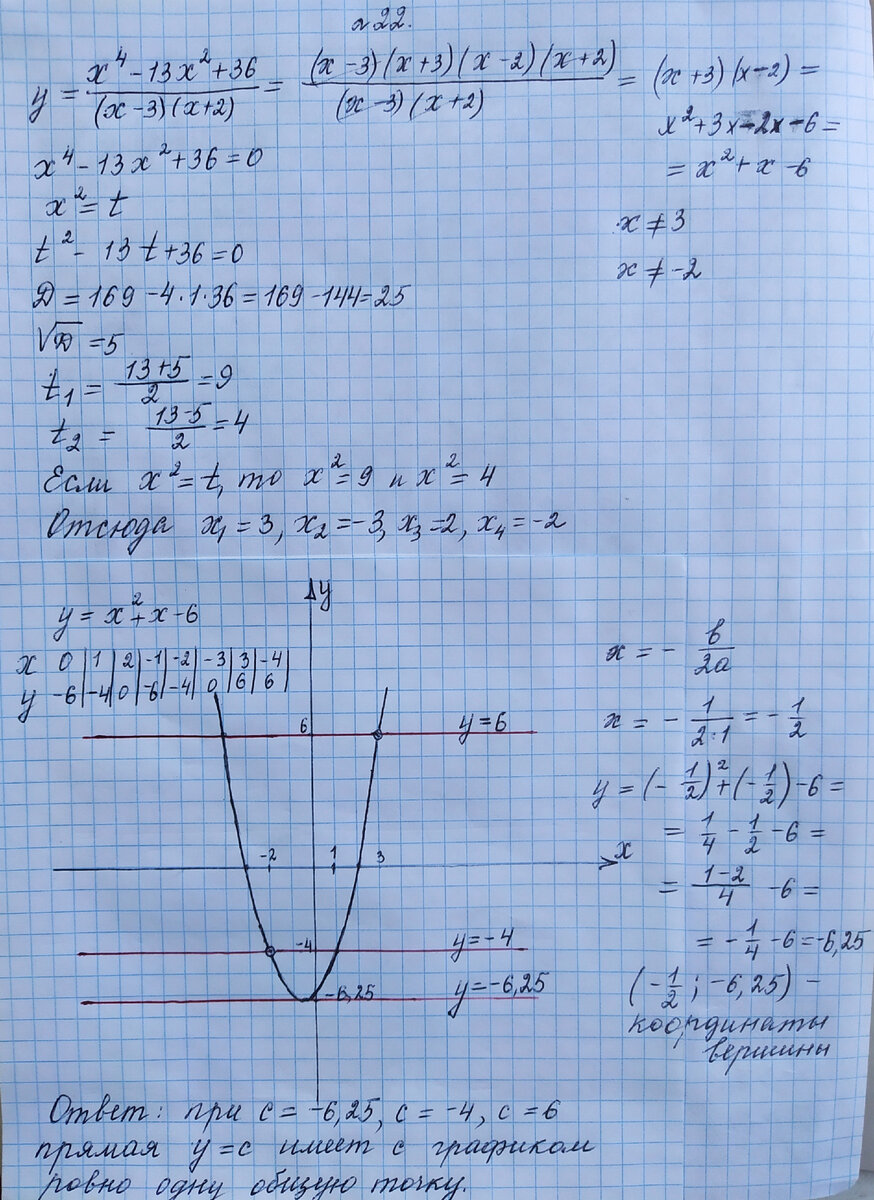 №22.
y = (x⁴ - 13x² + 36)/((x-3)(x+2)) = ((x-3)(x+3)(x-2)(x+2))/((x-3)(x+2)) = (x+3)(x-2) =
x² + 3x - 2x - 6 =
= x² + x - 6
x ≠ 3
x ≠ -2
x⁴ - 13x² + 36 = 0
x² = t
t² - 13t + 36 = 0
D = 169 - 4·1·36 = 169 - 144 = 25
√D = 5
t₁ = (13+5)/2 = 9
t₂ = (13-5)/2 = 4
Если x² = t, то x² = 9 и x² = 4
Отсюда x₁ = 3, x₂ = -3, x₃ = 2, x₄ = -2
y = x² + x - 6
x 0 | 1 | 2 | -1 | -2 | -3 | 3 | -4 |
y -6 | -4 | 0 | -6 | -4 | 0 | 6 | 6 |
y
6
y = 6
-2
1
3
x
-4
y = -4
-6,25
y = -6,25
x = - b/2a
x = - 1/(2·1) = - 1/2
y = (- 1/2)² + (- 1/2) - 6 =
= 1/4 - 1/2 - 6 =
= (1-2)/4 - 6 =
= - 1/4 - 6 = -6,25
(- 1/2; -6,25) -
координаты
вершины
Ответ: при c = -6,25, c = -4, c = 6
прямая y = c имеет с графиком
ровно одну общую точку.